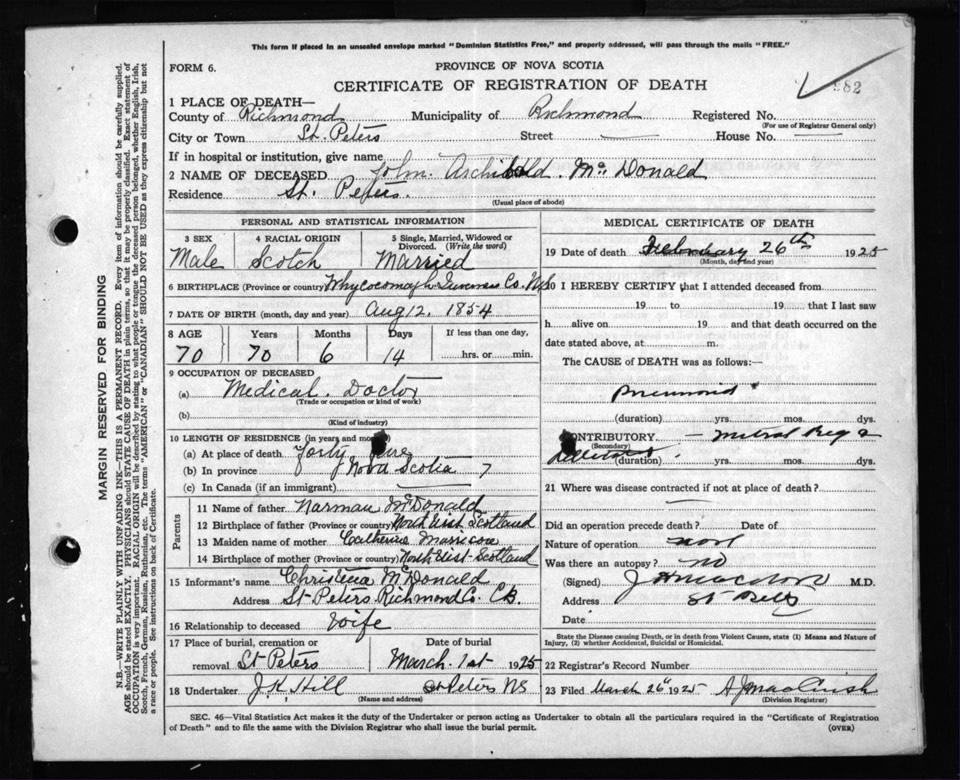 This form if placed in an unsealed envelope marked "Dominion Statistics Free," and properly addressed, will pass through the mails "FREE."
FORM 6.
PROVINCE OF NOVA SCOTIA
CERTIFICATE OF REGISTRATION OF DEATH
982
1 PLACE OF DEATH—
County of Richmond Municipality of Richmond Registered No.
(For use of Registrar General only)
City or Town St. Peters Street House No.
If in hospital or institution, give name
2 NAME OF DECEASED John Archibald Mc Donald
Residence St. Peters.
(Usual place of abode)
PERSONAL AND STATISTICAL INFORMATION
3 SEX Male
4 RACIAL ORIGIN Scotch
5 Single, Married, Widowed or Divorced. (Write the word) Married
6 BIRTHPLACE (Province or country) Whycocomagh Inverness Co. NS
7 DATE OF BIRTH (month, day and year) Aug 12, 1854
8 AGE Years Months Days If less than one day,
70 70 6 14 hrs. or min.
9 OCCUPATION OF DECEASED
(a) Medical Doctor
(Trade or occupation or kind of work)
(b)
(Kind of industry)
10 LENGTH OF RESIDENCE (in years and months)
(a) At place of death forty
(b) In province Nova Scotia
(c) In Canada (if an immigrant)
Parents
11 Name of father Norman McDonald
12 Birthplace of father (Province or country) North Uist Scotland
13 Maiden name of mother Catherine Morrison
14 Birthplace of mother (Province or country) North Uist Scotland
15 Informant's name Christena McDonald
Address St Peters Richmond Co. C.B.
16 Relationship to deceased Wife
17 Place of burial, cremation or Date of burial
removal St Peters March 1st 1925
18 Undertaker J. K. Hill St Peters NS
(Name and address)
MEDICAL CERTIFICATE OF DEATH
19 Date of death February 26th 1925
(Month, day and year)
20 I HEREBY CERTIFY that I attended deceased from
19 to 19 that I last saw
h alive on 19 and that death occurred on the
date stated above, at m.
The CAUSE of DEATH was as follows:—
pneumonia
(duration) yrs. mos. dys.
CONTRIBUTORY — mitral Reg
(Secondary)
(duration) yrs. mos. dys.
21 Where was disease contracted if not at place of death?
Did an operation precede death? Date of
Nature of operation
Was there an autopsy? no
(Signed) M.D.
Address St Peters
Date
State the Disease causing Death, or in death from Violent Causes, state (1) Means and Nature of Injury, (2) whether Accidental, Suicidal or Homicidal.
22 Registrar's Record Number
23 Filed March 26 1925
(Division Registrar)
SEC. 46—Vital Statistics Act makes it the duty of the Undertaker or person acting as Undertaker to obtain all the particulars required in the "Certificate of Registration
of Death" and to file the same with the Division Registrar who shall issue the burial permit.
(OVER)
MARGIN RESERVED FOR BINDING
N.B.—WRITE PLAINLY WITH UNFADING INK—THIS IS A PERMANENT RECORD. Every item of information should be carefully supplied.
AGE should be stated EXACTLY. PHYSICIANS should STATE CAUSE OF DEATH in plain terms, so that it may be properly classified. Exact statement of
OCCUPATION is very important. RACIAL ORIGIN will be described by stating to what people or tongue the deceased person belonged, whether English, Irish,
Scotch, French, German, Russian, Ruthenian, etc. The terms "AMERICAN" or "CANADIAN" SHOULD NOT BE USED as they express citizenship but not
a race or people. See instructions on back of Certificate.